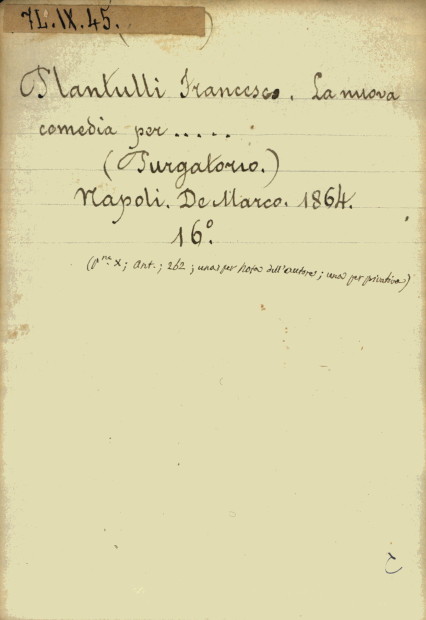 7L.IX.45.
Plantulli Francesco. La nuova
comedia per.....
(Purgatorio.)
Napoli. De Marco. 1864.
16°.
(pne X; ant.; 262; una per nota dell'autore; una per privativa)
C